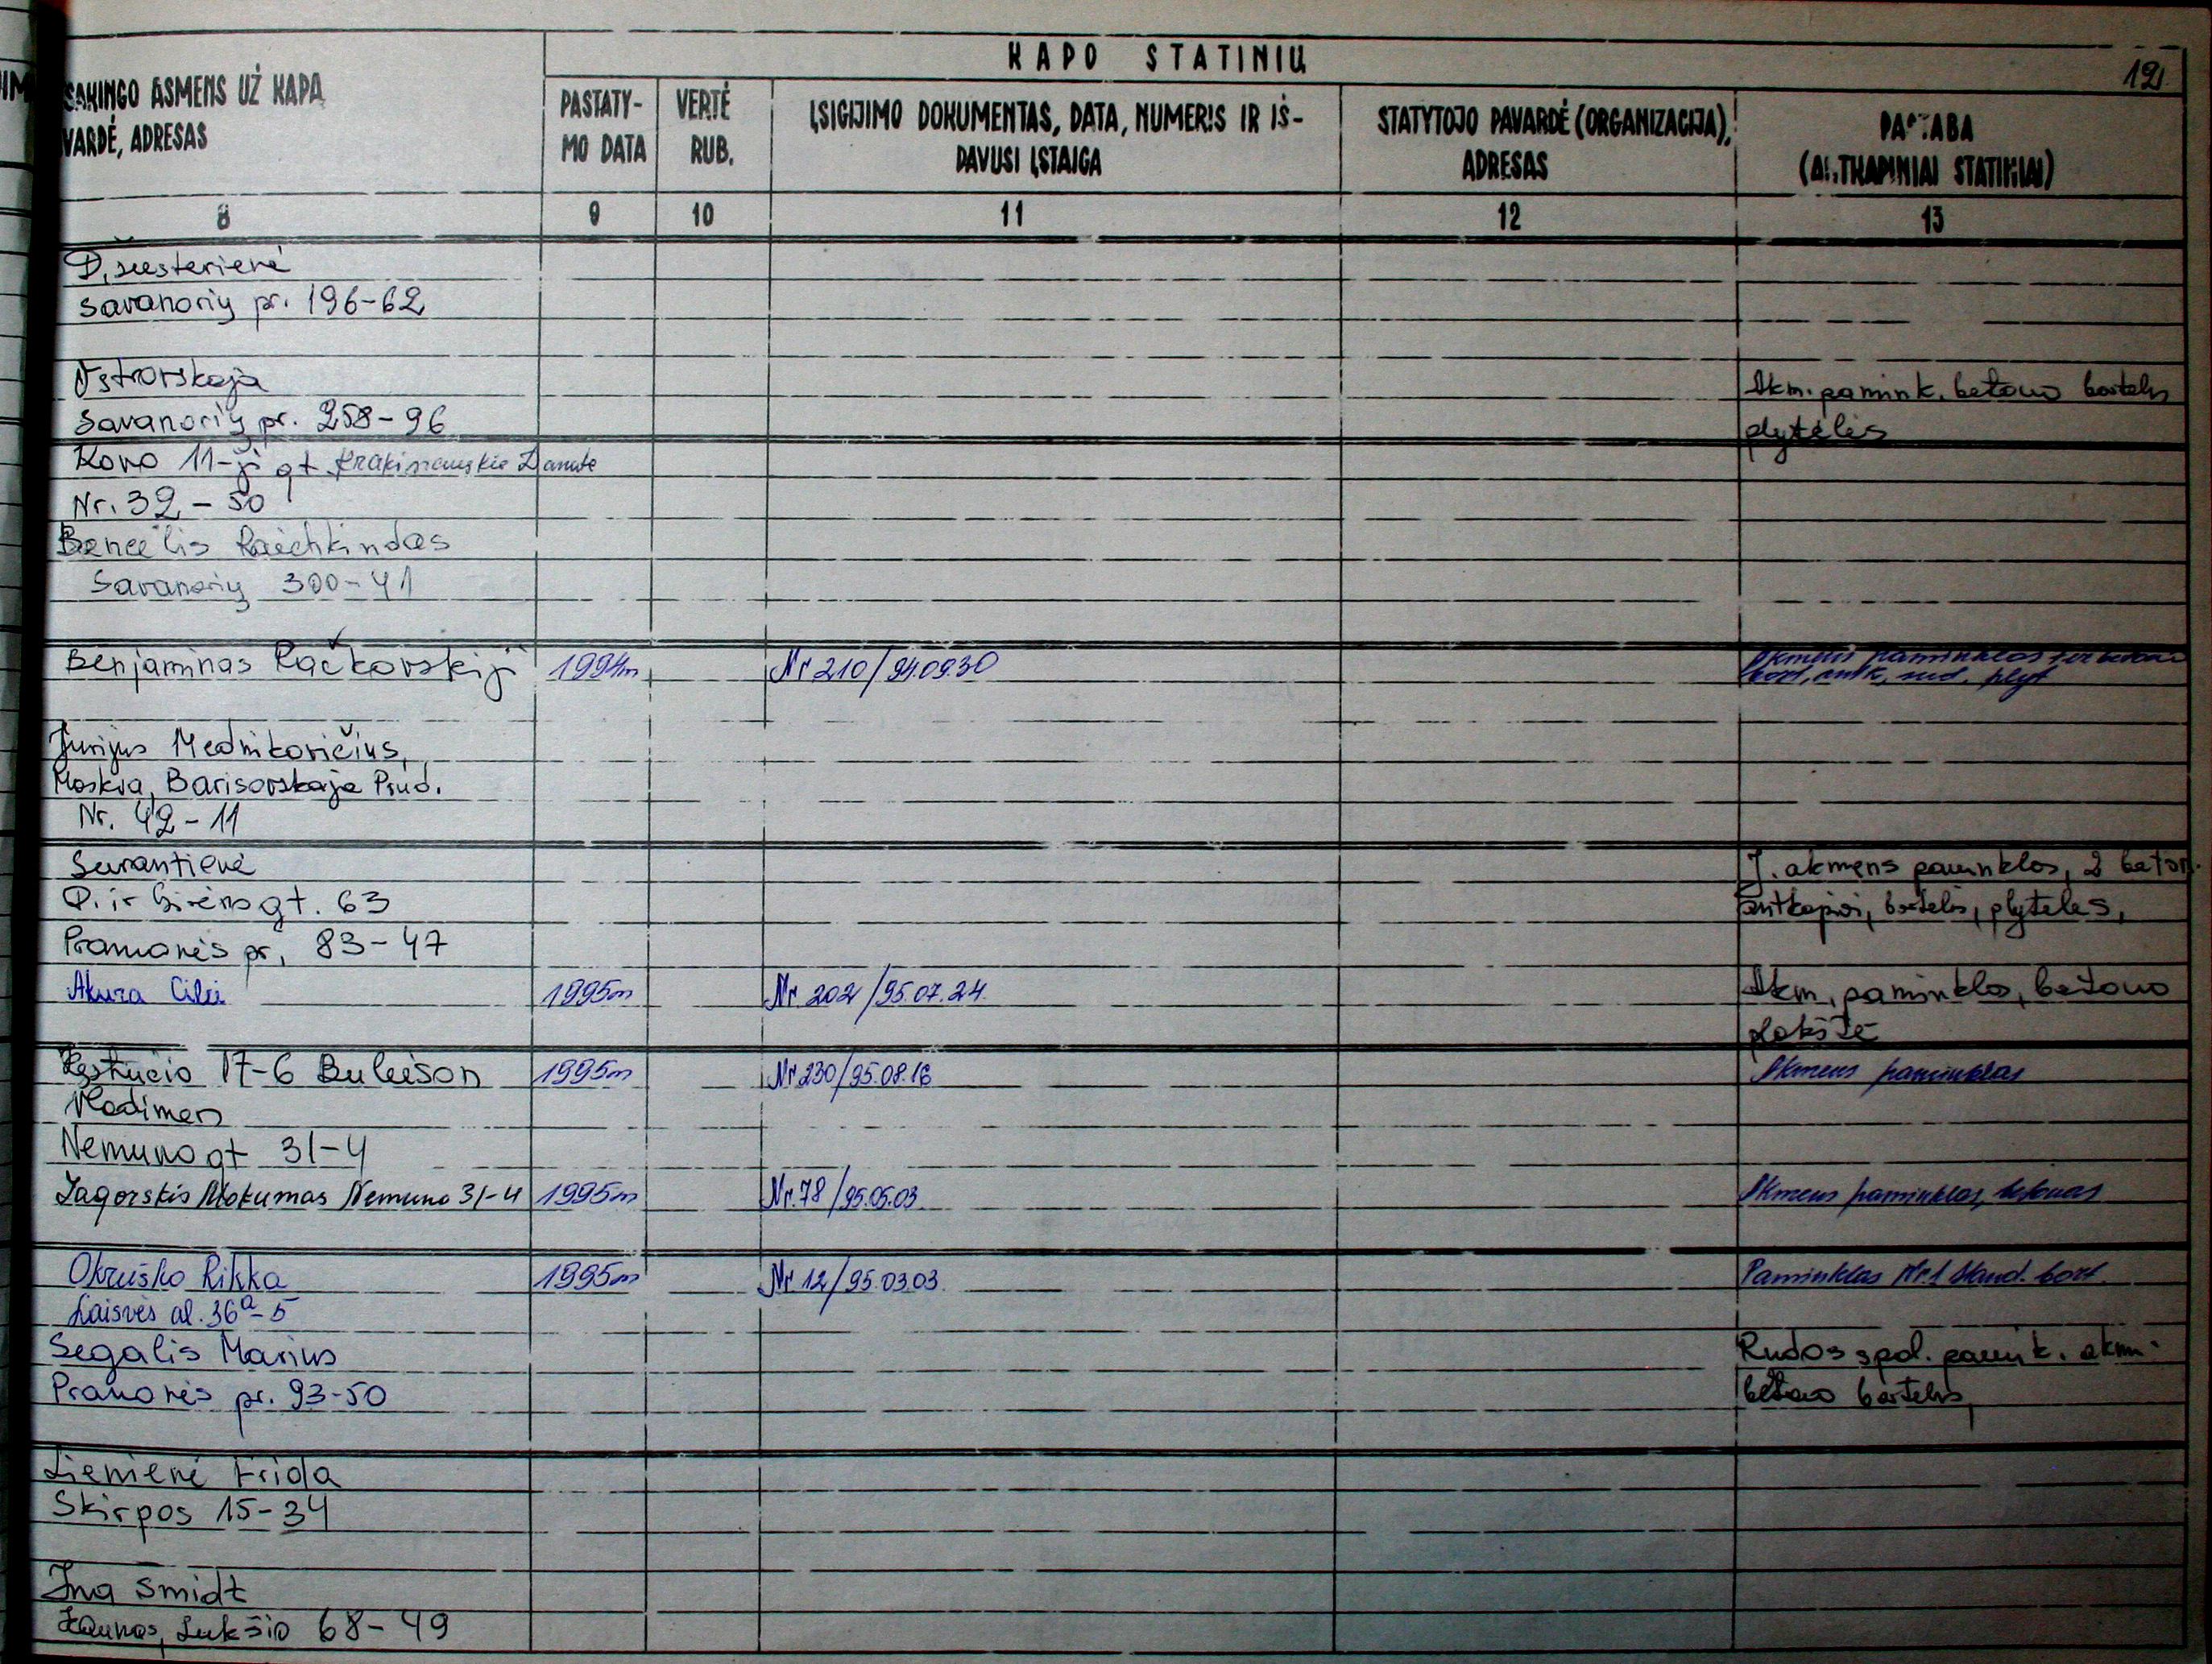 KAPO STATINIŲ
12
SAKINGO ASMENS UŽ KAPĄ
VARDĖ, ADRESAS
PASTATY-
MO DATA
VERTĖ
RUB.
ĮSIGIJIMO DOKUMENTAS, DATA, NUMERIS IR IŠ-
DAVUSI ĮSTAIGA
STATYTOJO PAVARDĖ (ORGANIZACIJA),
ADRESAS
PASTABA
(ANTKAPINIAI STATINIAI)
8 9 10 11 12 13
Savanorių pr. 196-62
Ostrovskaja
Akm. pamink. betono bortelis
Savanorių pr. 258-96
plytelės
Kovo 11-ji gt Danutė
Nr. 32-50
Savanorių 300-41
Benjaminas Račkovskij 1994m. Nr 210/94.09.30 Akmens paminklas
bort, antk, plyt
Jurijus Mednikovičius,
Moskva, Barisovskaja Prud.
Nr. 42-11
J. akmens paminklas, 2 beton.
63
antkapiai, bortelis, plyteles,
Pramonės pr. 83-47
Akura 1995m Nr 202/95.07.24. Akm. paminklas, betono
plokštė
Kęstučio 17-6 1995m Nr 230/95.08.16 Akmens paminklas
Vladimers
Nemuno gt 31-4
Zagorskis Mokumas Nemuno 31-4 1995m Nr. 78/95.05.03 Akmens paminklas, betonas
Okruško Rikka 1995m Nr 12/95.03.03 Paminklas Nr.1 Stand. bort.
Laisvės al. 36a-5
Segalis Marius
Rudos spal. pamink. akm.
Pramonės pr. 93-50
betono bortelis,
Lienienė Frida
Skirpos 15-34
Ina Smidt
Kaunas, Lukšio 68-49